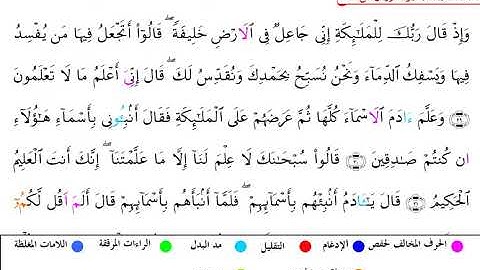 وَإِذْ قَالَ رَبُّكَ لِلْمَلَٰٓئِكَةِ إِنِّي جَاعِلٞ فِي الَارْضِ خَلِيفَةٗ قَالُوٓاْ أَتَجْعَلُ فِيهَا مَن يُفْسِدُ
فِيهَا وَيَسْفِكُ الدِّمَآءَ وَنَحْنُ نُسَبِّحُ بِحَمْدِكَ وَنُقَدِّسُ لَكَ قَالَ إِنِّيَ أَعْلَمُ مَا لَا تَعْلَمُونَ
وَعَلَّمَ ءَادَمَ الَاسْمَآءَ كُلَّهَا ثُمَّ عَرَضَهُمْ عَلَى الْمَلَٰٓئِكَةِ فَقَالَ أَنۢبِـُٔونِي بِأَسْمَآءِ هَٰٓؤُلَآءِ
ان كُنتُمْ صَٰدِقِينَ قَالُواْ سُبْحَٰنَكَ لَا عِلْمَ لَنَآ إِلَّا مَا عَلَّمْتَنَآ إِنَّكَ أَنتَ الْعَلِيمُ
الْحَكِيمُ قَالَ يَٰٓـَٔادَمُ أَنۢبِئْهُم بِأَسْمَآئِهِمْ فَلَمَّآ أَنۢبَأَهُم بِأَسْمَآئِهِمْ قَالَ أَلَمَ اَقُل لَّكُمُۥٓ
الحرف المخالف لحفص الإدغام التقليل مد البدل الراءات المرققة اللامات المغلظة